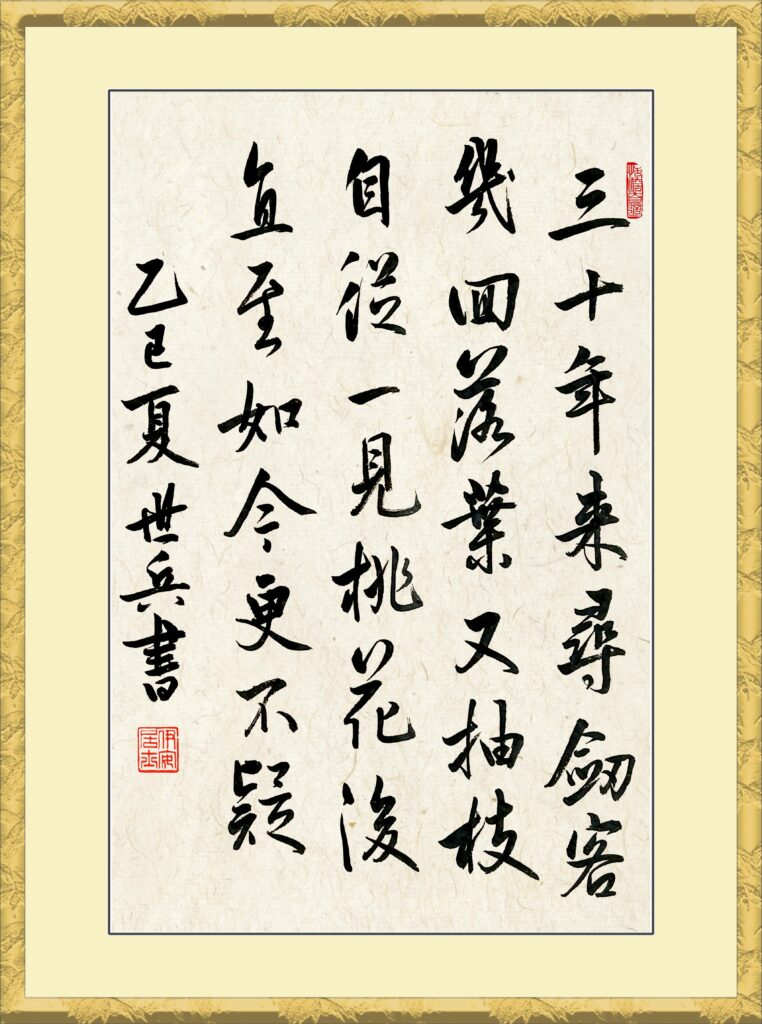 三十年来尋劒客
幾回落葉又抽枝
自從一見桃花後
直至如今更不疑
乙巳夏世兵書
伊安居士